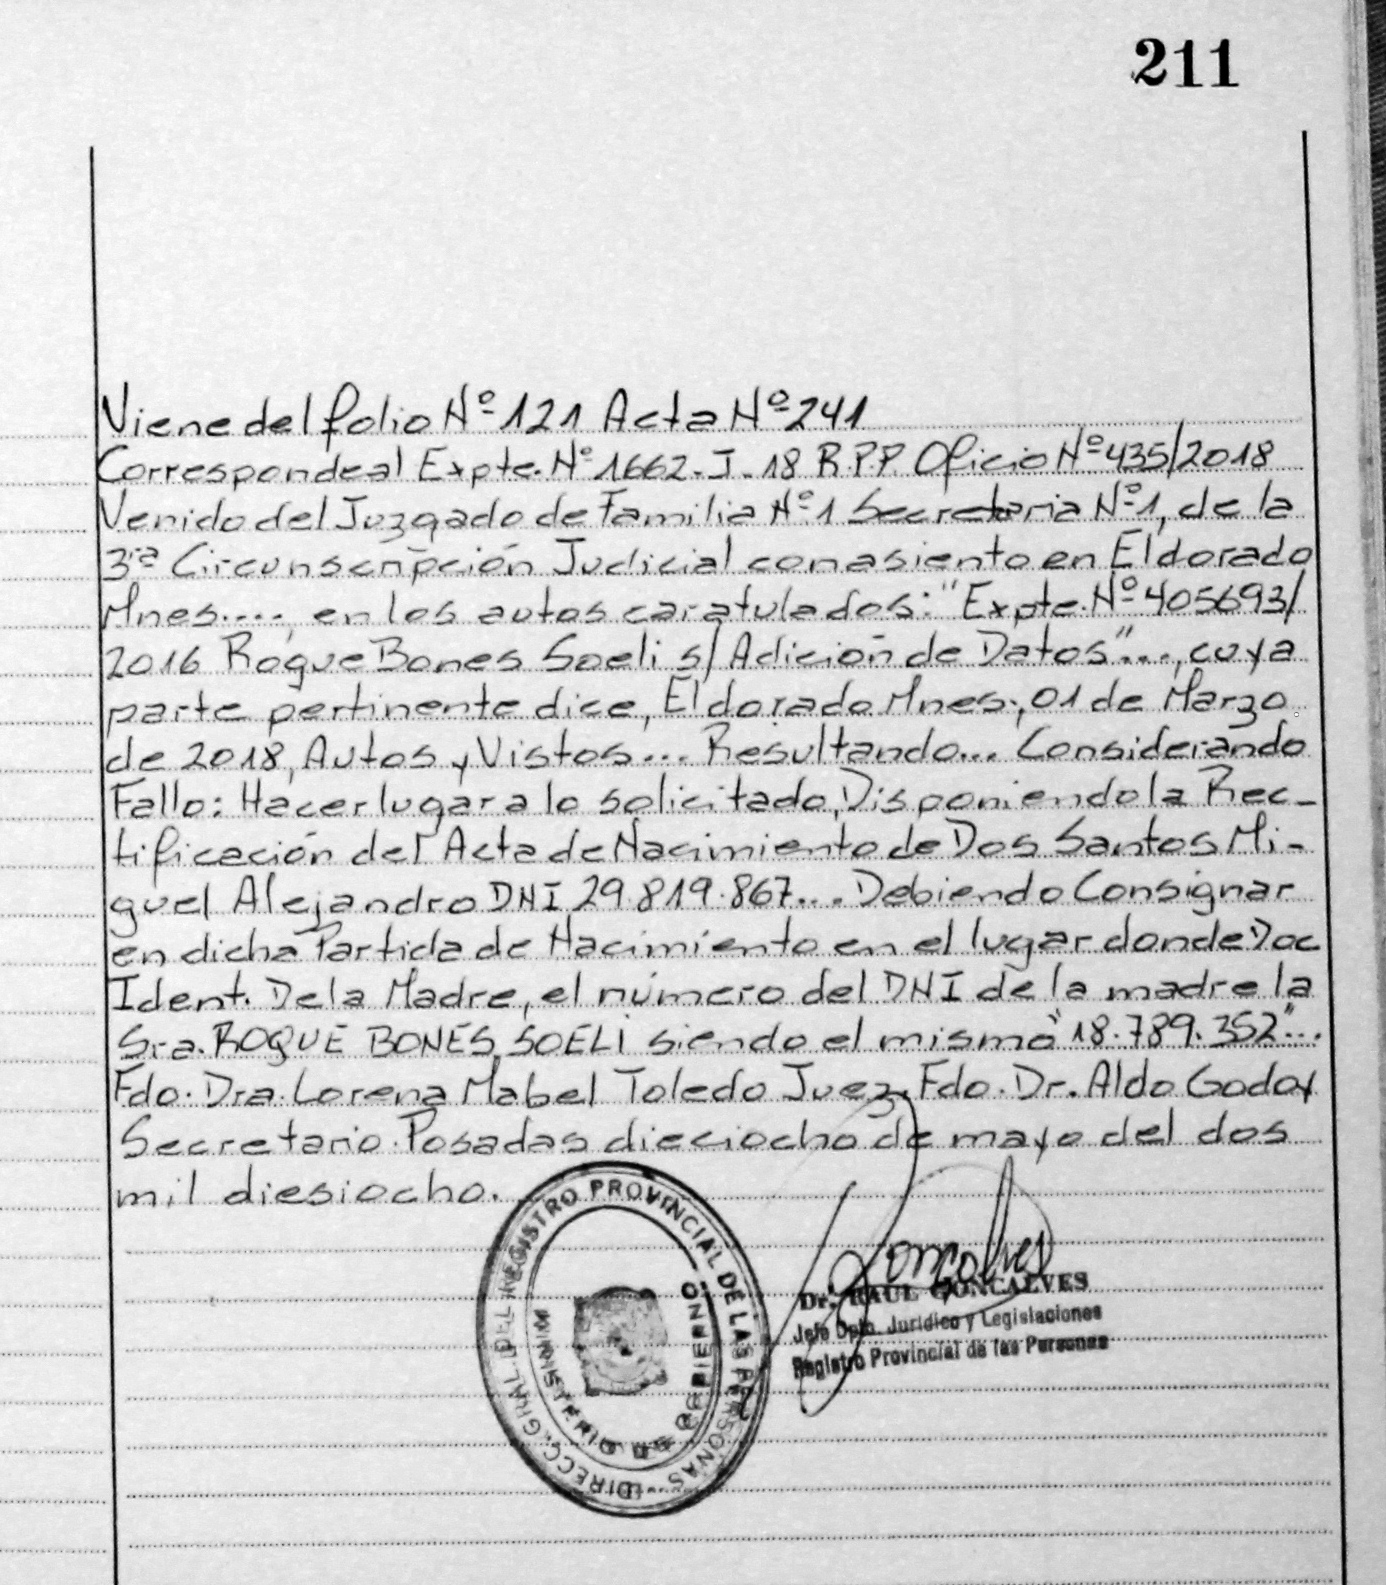 211
Viene del folio Nº 121 Acta Nº 241
Corresponde al Expte. Nº 1662-J-18 R.P.P. Oficio Nº 435/2018
Venido del Juzgado de Familia Nº 1 Secretaria Nº 1, de la
3ra Circunscripción Judicial con asiento en Eldorado
Mnes...., en los autos caratulados: "Expte. Nº 405693/
2016 Roque Bones Soeli s/ Adición de Datos"..., cuya
parte pertinente dice, Eldorado Mnes., 01 de Marzo
de 2018, Autos y Vistos... Resultando... Considerando
Fallo: Hacer lugar a lo solicitado, Disponiendo la Rec-
tificación del Acta de Nacimiento de Dos Santos Mi-
guel Alejandro DNI 29.819.867... Debiendo Consignar
en dicha Partida de Nacimiento en el lugar donde Doc
Ident. De la Madre, el número del DNI de la madre la
Sra. ROQUE BONES, SOELI siendo el mismo "18.789.352"...
Fdo. Dra. Lorena Mabel Toledo Juez. Fdo. Dr. Aldo Godoy
Secretario. Posadas dieciocho de mayo del dos
mil diesiocho.
DIRECC. GRAL. DEL REGISTRO PROVINCIAL DE LAS PERSONAS
MINISTERIO DE GOBIERNO
Gonçalves
Dr. RAUL GONCALVES
Jefe Dpto. Jurídico y Legislaciones
Registro Provincial de las Personas